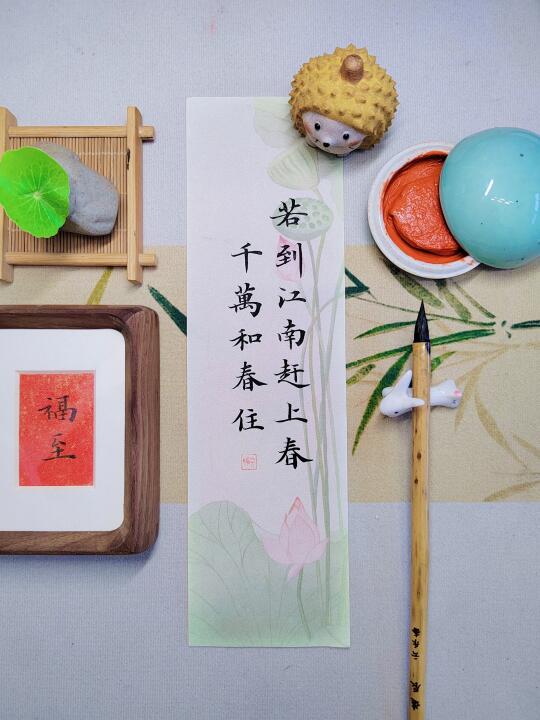 若到江南赶上春
千萬和春住
福至